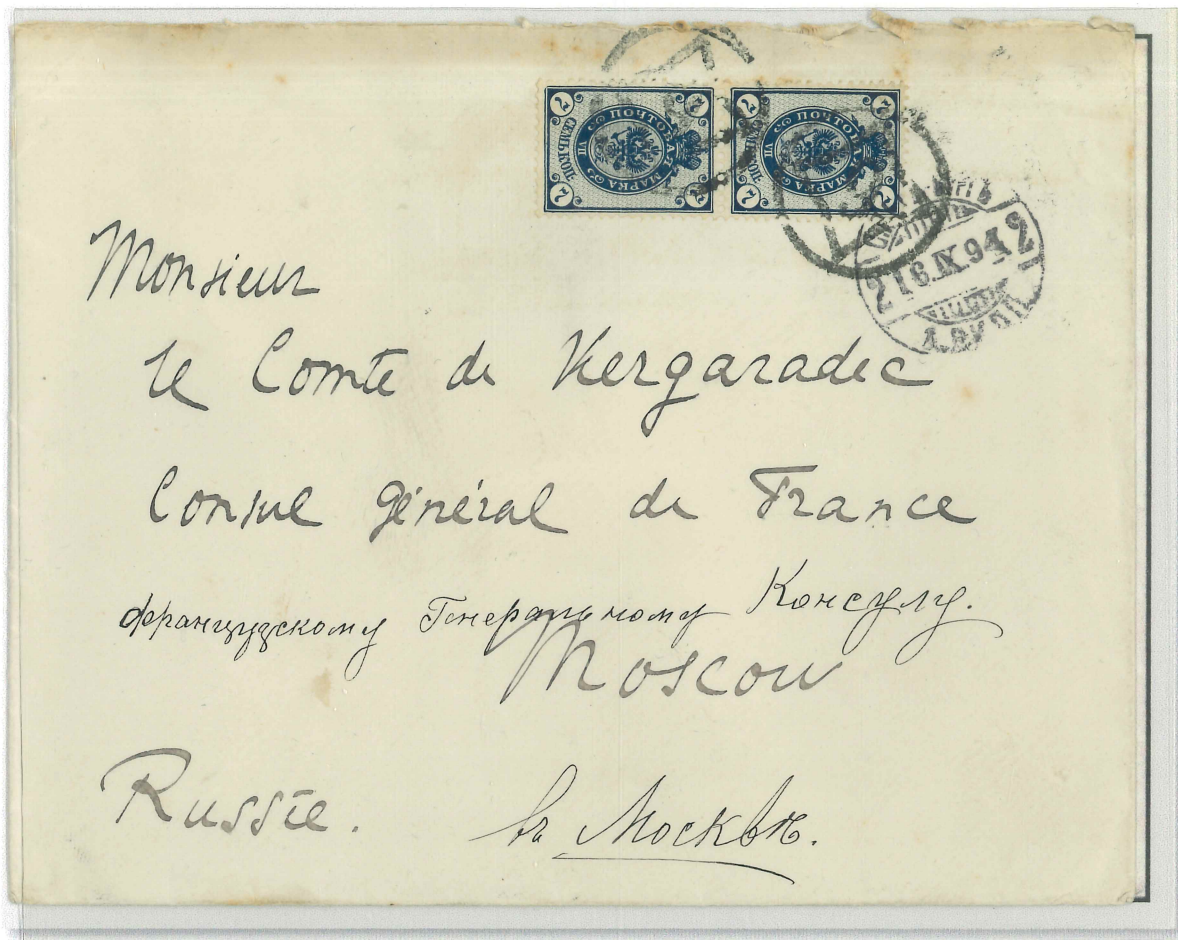 7 7 7 7
ПОЧТОВАЯ МАРКА
VII
СЕМЬ КОП.
7 7 7 7
ПОЧТОВАЯ МАРКА
VII
СЕМЬ КОП.
2 18.IX.94 2
Monsieur
le Comte de Kergaradec
Consul général de France
французскому Генеральному Консулу.
Moscow
Russie.
въ Москвѣ.